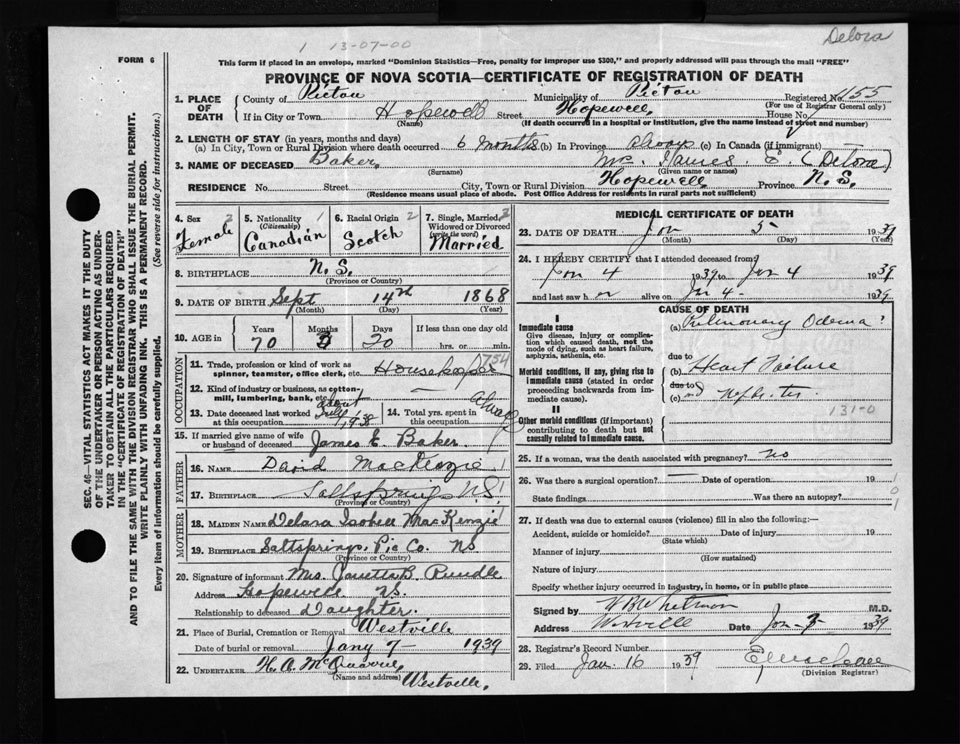 Delora
1 13-07-00
FORM 6
This form if placed in an envelope, marked "Dominion Statistics—Free, penalty for improper use $300," and properly addressed will pass through the mail "FREE"
PROVINCE OF NOVA SCOTIA—CERTIFICATE OF REGISTRATION OF DEATH
1. PLACE OF DEATH County of Pictou Municipality of Pictou Registered No. 455
(For use of Registrar General only)
If in City or Town Hopewell Street Hopewell House No.
(Name) (If death occurred in a hospital or institution, give the name instead of street and number)
2. LENGTH OF STAY (in years, months and days)
(a) In City, Town or Rural Division where death occurred 6 months (b) In Province always (c) In Canada (if immigrant)
3. NAME OF DECEASED Baker, Mrs. James E. (Delora)
(Surname) (Given name or names)
RESIDENCE No. Street City, Town or Rural Division Hopewell Province N.S.
(Residence means usual place of abode. Post Office Address for residents in rural parts not sufficient)
4. Sex 2 Female
5. Nationality (Citizenship) 1 Canadian
6. Racial Origin 2 Scotch
7. Single, Married, Widowed or Divorced (write the word) 2 Married
8. BIRTHPLACE N.S.
(Province or Country)
9. DATE OF BIRTH Sept 14th 1868
(Month) (Day) (Year)
10. AGE in Years 70 Months 3 Days 20 If less than one day old hrs. or min.
OCCUPATION
11. Trade, profession or kind of work as spinner, teamster, office clerk, etc. Housekeeper 754
12. Kind of industry or business, as cotton-mill, lumbering, bank, etc.
13. Date deceased last worked at this occupation. July 1, 1938
14. Total yrs. spent in this occupation always
15. If married give name of wife or husband of deceased James E Baker.
FATHER
16. NAME David MacKenzie
17. BIRTHPLACE Saltsprings N.S.
(Province or Country)
MOTHER
18. MAIDEN NAME Delana Isobell MacKenzie
19. BIRTHPLACE Saltsprings, Pic Co. NS
(Province or Country)
20. Signature of informant Mrs. Rundle
Address Hopewell N.S.
Relationship to deceased Daughter.
21. Place of Burial, Cremation or Removal Westville
Date of burial or removal Jany 7 - 1939
22. UNDERTAKER H. A. McQuarrie,
(Name and address) Westville.
MEDICAL CERTIFICATE OF DEATH
23. DATE OF DEATH Jan 5 1939
(Month) (Day) (Year)
24. I HEREBY CERTIFY that I attended deceased from
Jan 4 1939 to Jan 4 1939
and last saw h er alive on Jan 4 - 1939
CAUSE OF DEATH
I
Immediate cause
Give disease, injury or complication which caused death, not the mode of dying, such as heart failure, asphyxia, asthenia, etc.
(a) Pulmonary Odema
due to
Morbid conditions, if any, giving rise to immediate cause (stated in order proceeding backwards from immediate cause).
(b) Heart Failure
due to
(c) and Nephritis
II
131-0
Other morbid conditions (if important) contributing to death but not causally related to immediate cause.
25. If a woman, was the death associated with pregnancy? no
26. Was there a surgical operation? Date of operation 19
State findings Was there an autopsy?
27. If death was due to external causes (violence) fill in also the following:—
Accident, suicide or homicide? Date of injury 19
(State which)
Manner of injury
(How sustained)
Nature of injury
Specify whether injury occurred in industry, in home, or in public place
Signed by W B Whitman M.D.
Address Westville Date Jan 7 1939
28. Registrar's Record Number
29. Filed Jan 16 1939
(Division Registrar)
SEC. 46—VITAL STATISTICS ACT MAKES IT THE DUTY OF THE UNDERTAKER OR PERSON ACTING AS UNDERTAKER TO OBTAIN ALL THE PARTICULARS REQUIRED IN THE "CERTIFICATE OF REGISTRATION OF DEATH"
AND TO FILE THE SAME WITH THE DIVISION REGISTRAR WHO SHALL ISSUE THE BURIAL PERMIT.
WRITE PLAINLY WITH UNFADING INK. THIS IS A PERMANENT RECORD.
Every Item of Information should be carefully supplied. (See reverse side for instructions.)